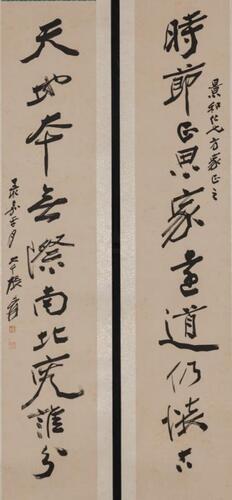 景和仁兄方家正之
時節正思家遠道仍懷古
天地本無際南北竟誰分
大千張爰